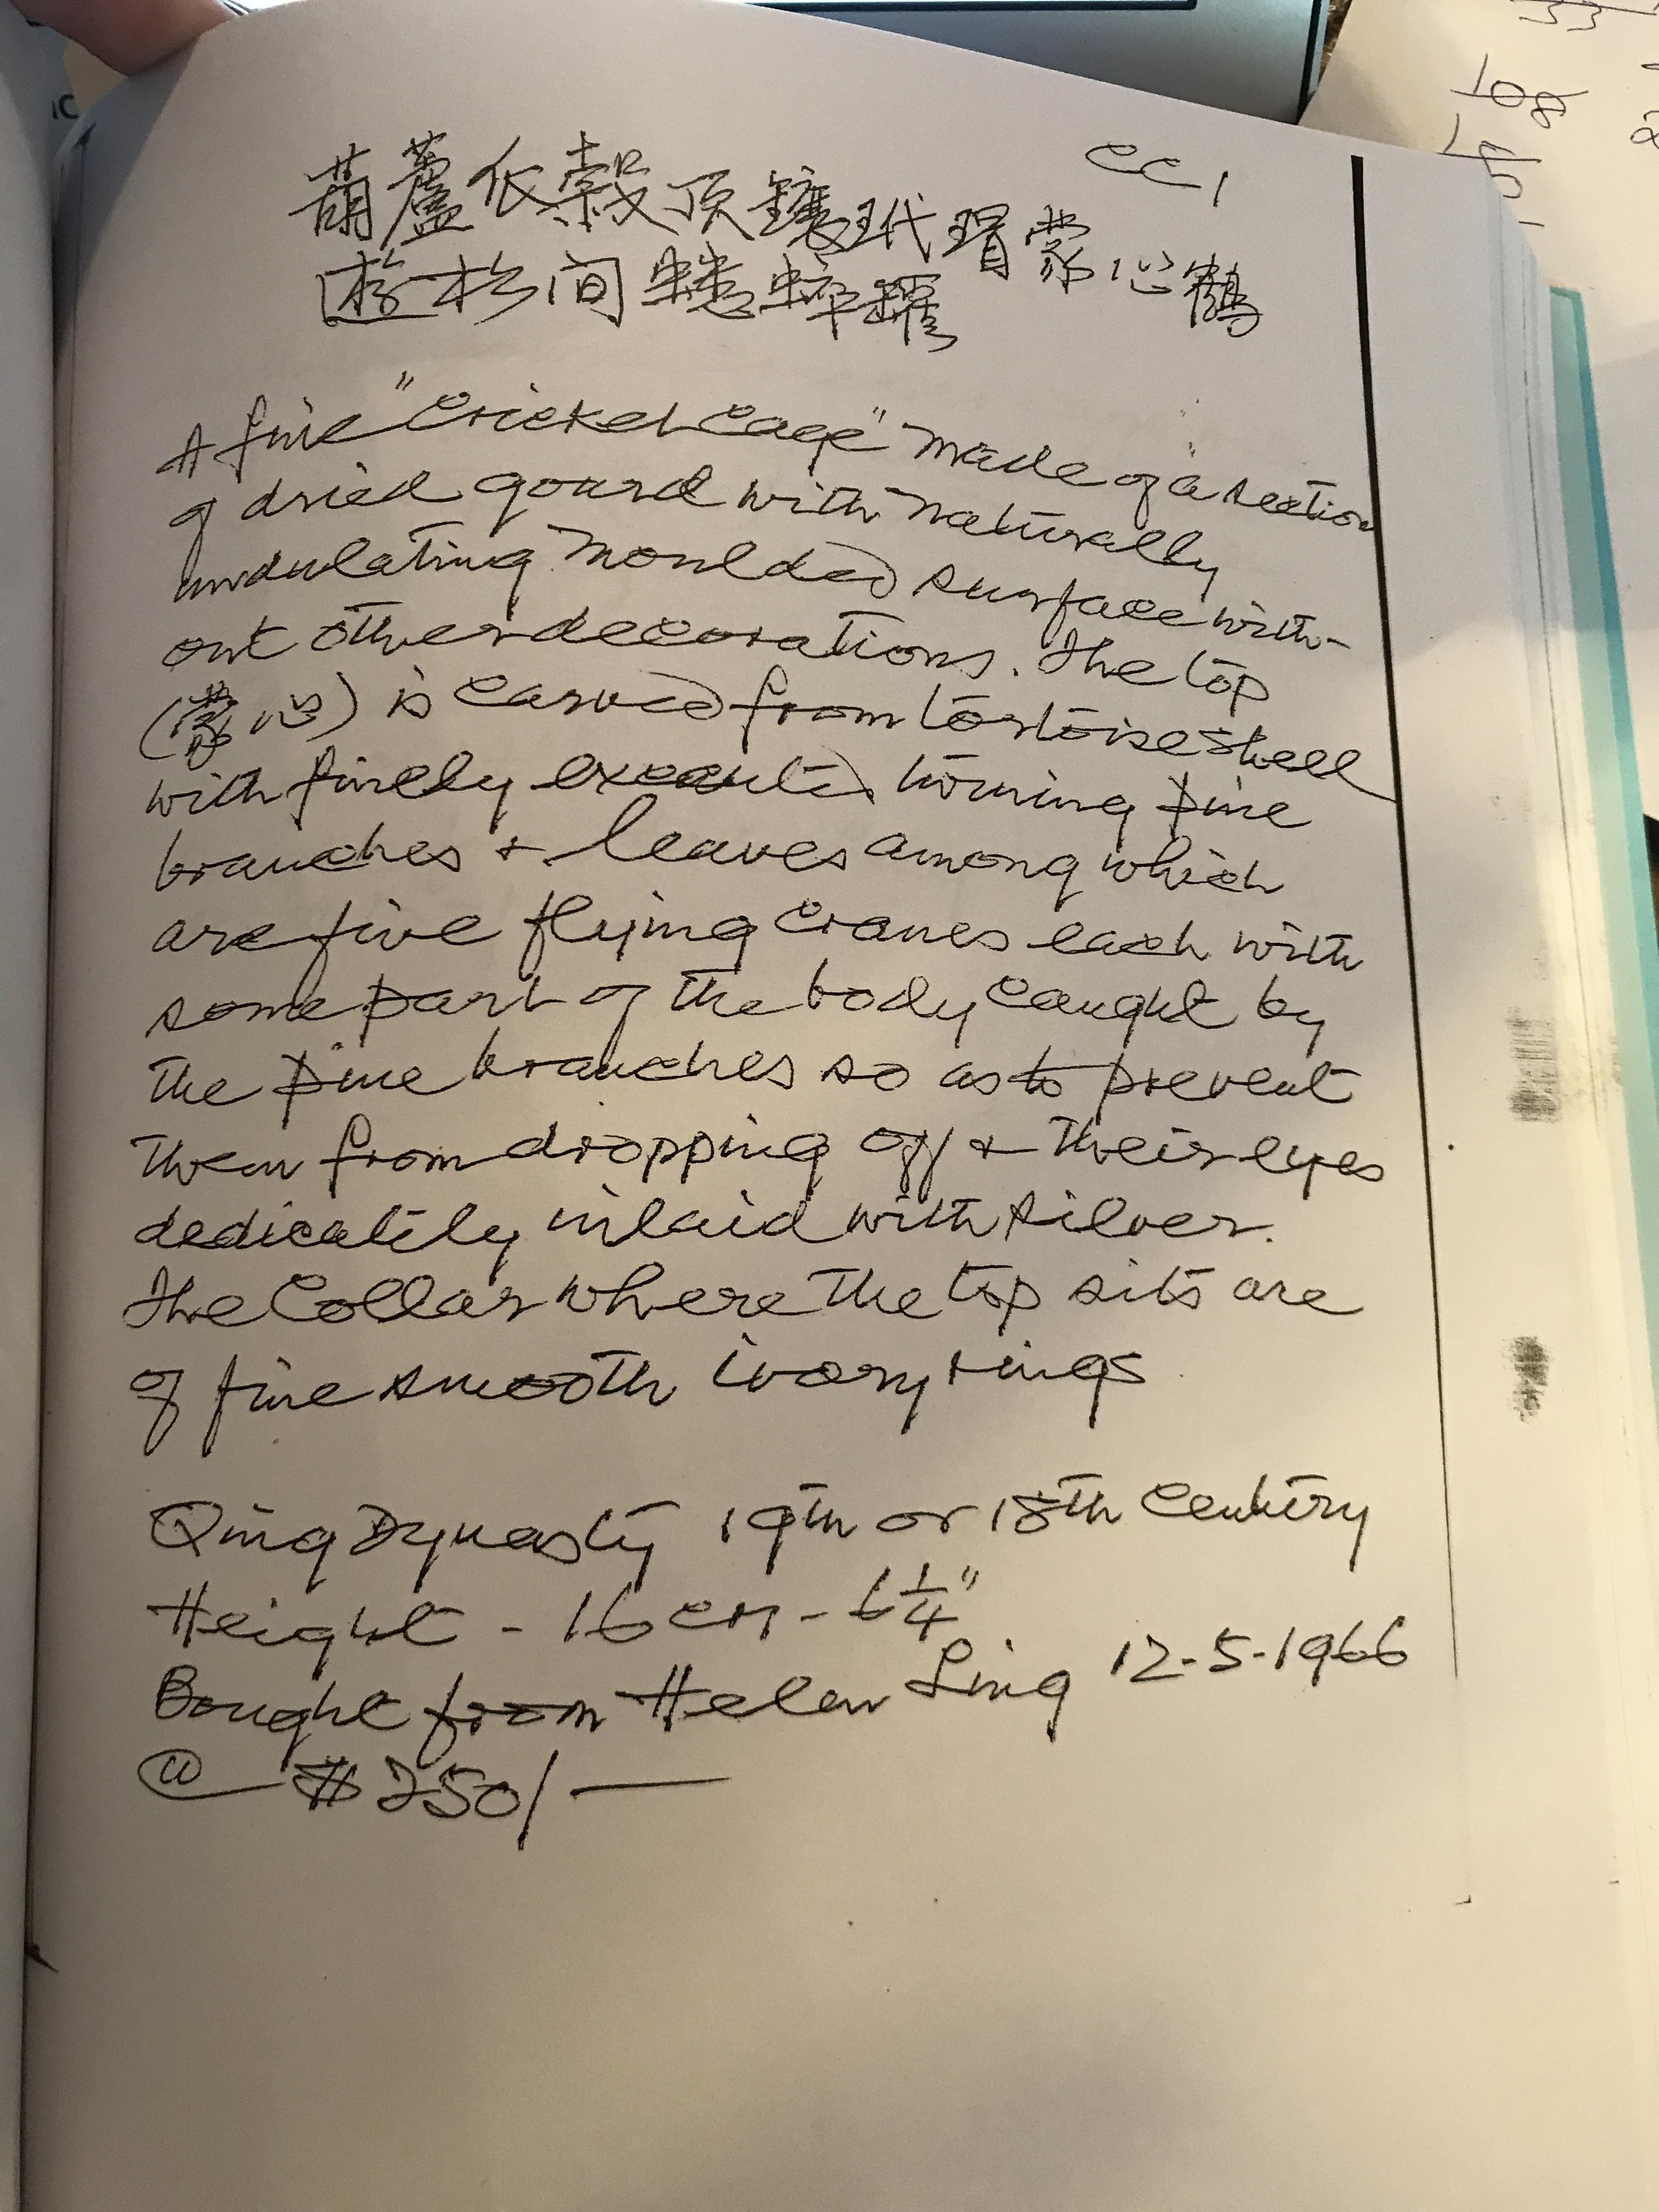 CC1
葫蘆低穀頂鑲玳瑁蒙心鶴
遊松间蟋蟀罐
A fine "Cricket Cage" made of a section
of dried gourd with naturally
undulating moulded surface with-
out other decorations. The top
(蒙心) is carved from tortoiseshell
with finely executed
pine
branches + leaves among which
are five flying cranes each with
some part of the body caught by
the pine branches so as to prevent
them from dropping off + their eyes
dedicately inlaid with silver.
The Collar where the top sits are
of fine smooth ivory rings
Qing Dynasty 19th or 18th Century
Height - 16 cm - 6 1/4"
Bought from Helen Ling 12-5-1966
@ $250/—
33
108